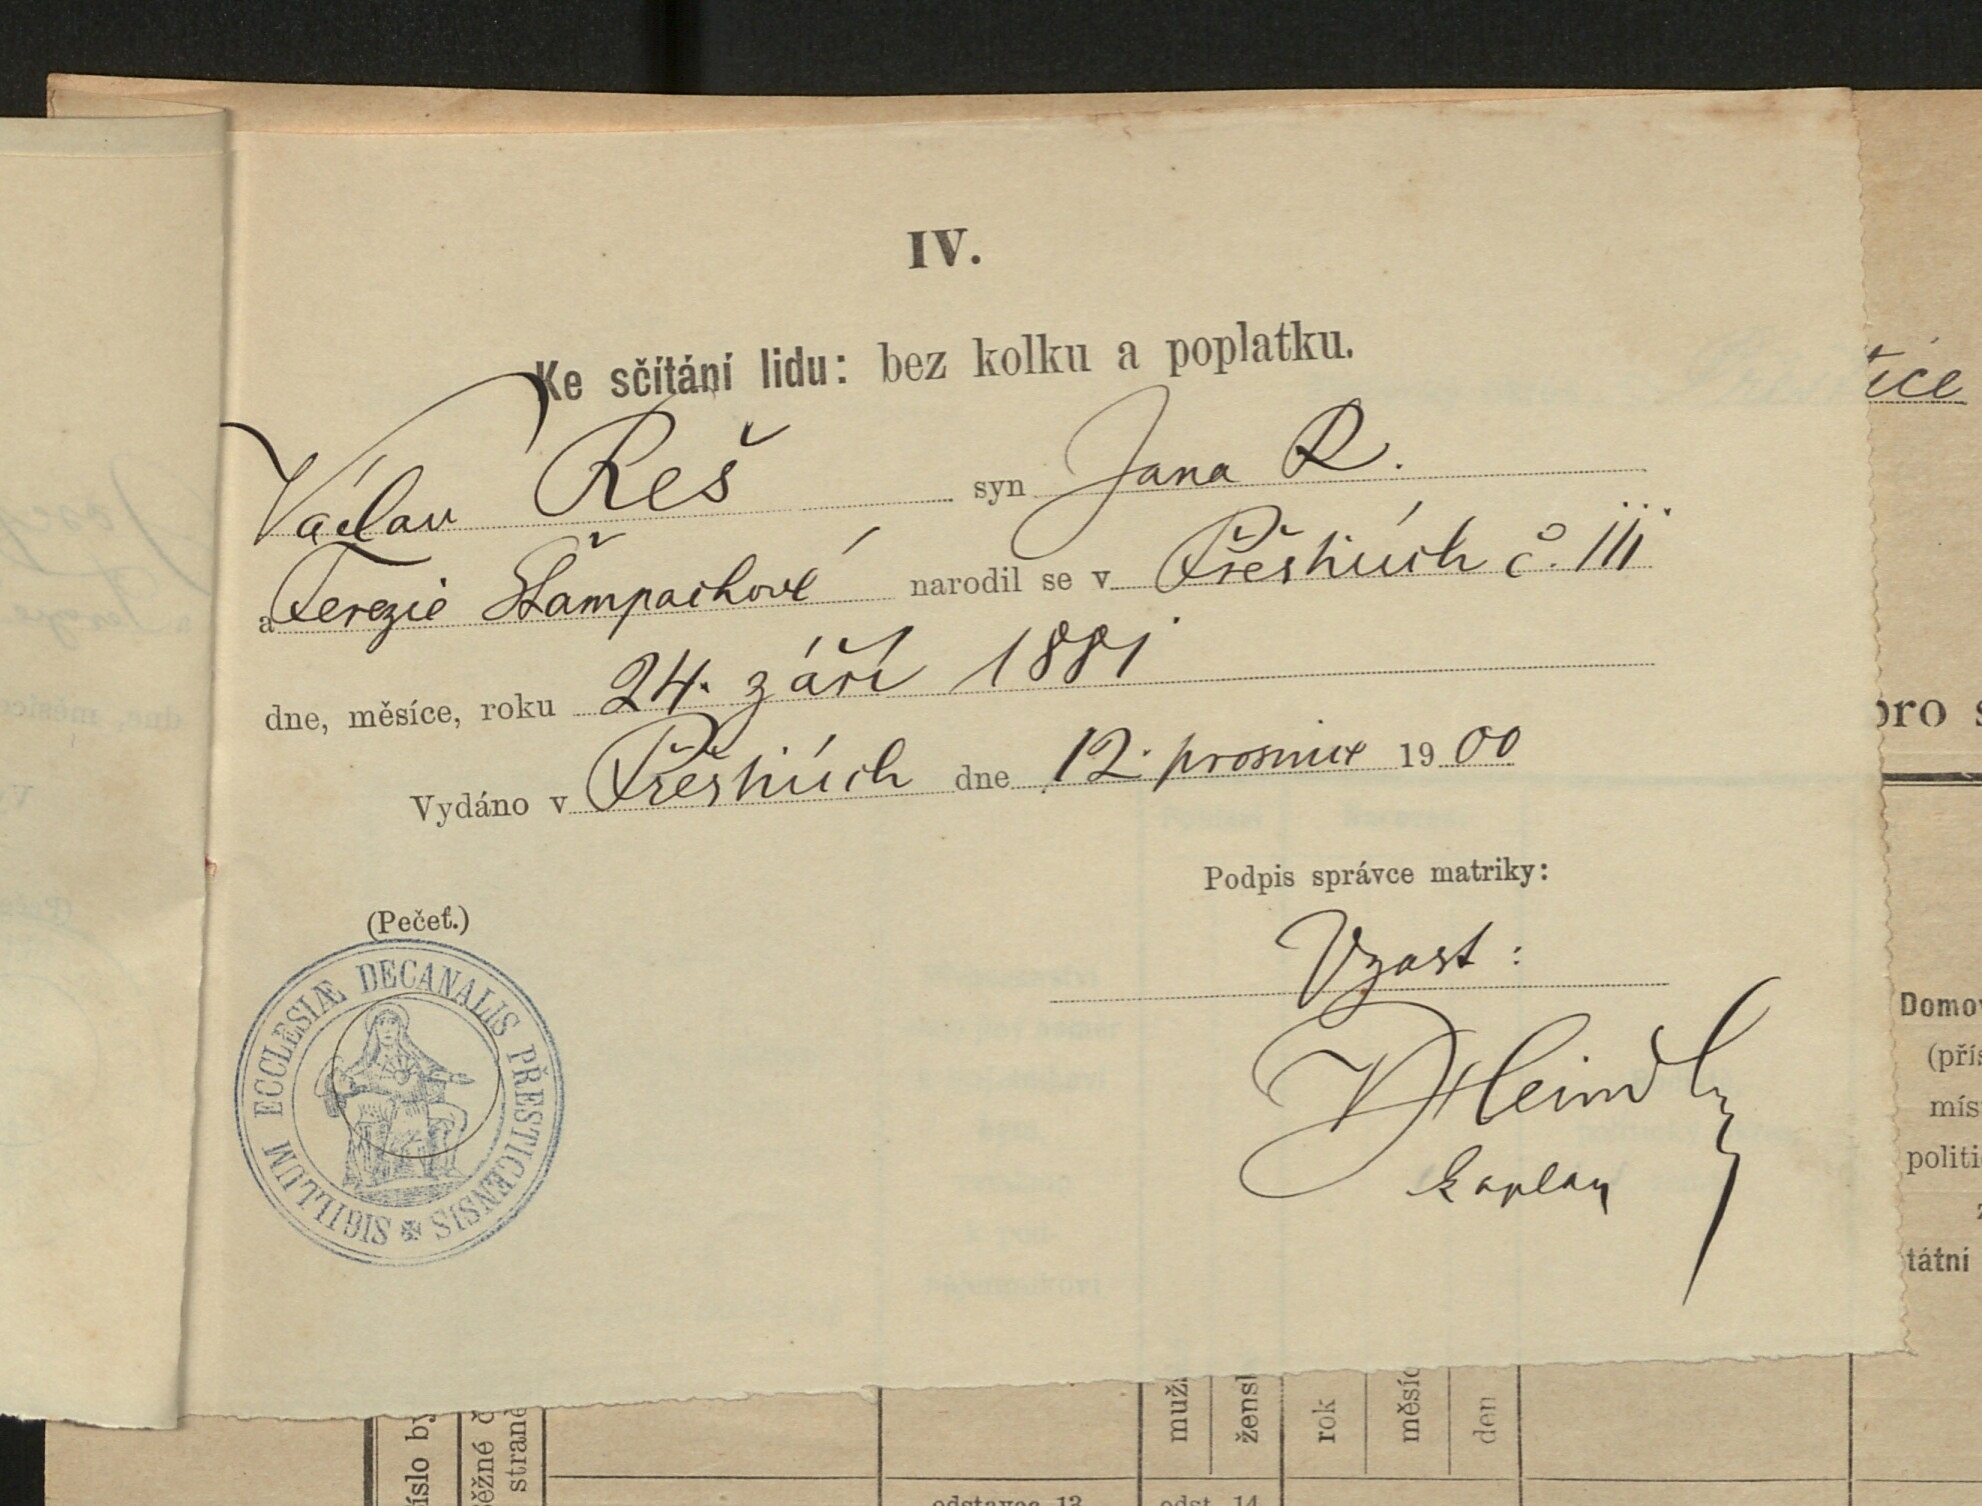 IV.
Ke sčítání lidu: bez kolku a poplatku.
Václav Reš syn Jana R.
a Terezie Štampachové narodil se v Přešticích č. 111
dne, měsíce, roku 24. září 1881
Vydáno v Přešticích dne 12. prosince 1900
Podpis správce matriky:
(Pečeť.)
Vzast:
Heindl
kaplan
SIGILLUM ECCLESIÆ DECANALIS PŘESTICENSIS
tice
pro s
Domov
(přís
mís
politi
tátní
íslo by
ěžné č
straně
muž
žensk
rok
měsíc
den
odstavec 13
odst. 14